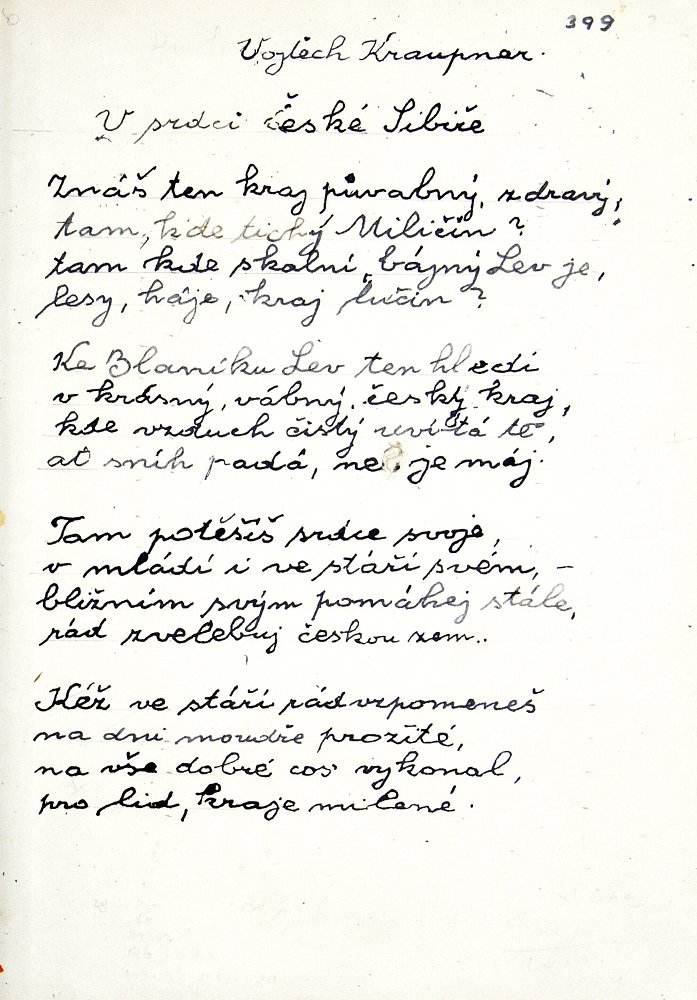 399
Vojtěch Kraupner.
V srdci České Sibiře
Znáš ten kraj půvabný, zdravý,
tam, kde tichý Miličín?
tam kde skalní, bájný Lev je,
lesy, háje, kraj lučin?
Ke Blaníku Lev ten hledí
v krásný, vábný, český kraj,
kde vzduch čistý uvítá tě,
ať sníh padá, neb je máj.
Tam potěšíš srdce svoje,
v mládí i ve stáří svém, –
bližním svým pomáhej stále,
rád zvelebuj českou zem..
Kéž ve stáří rád vzpomeneš
na dni moudře prožité,
na vše dobré cos vykonal,
pro lid, kraje milené.